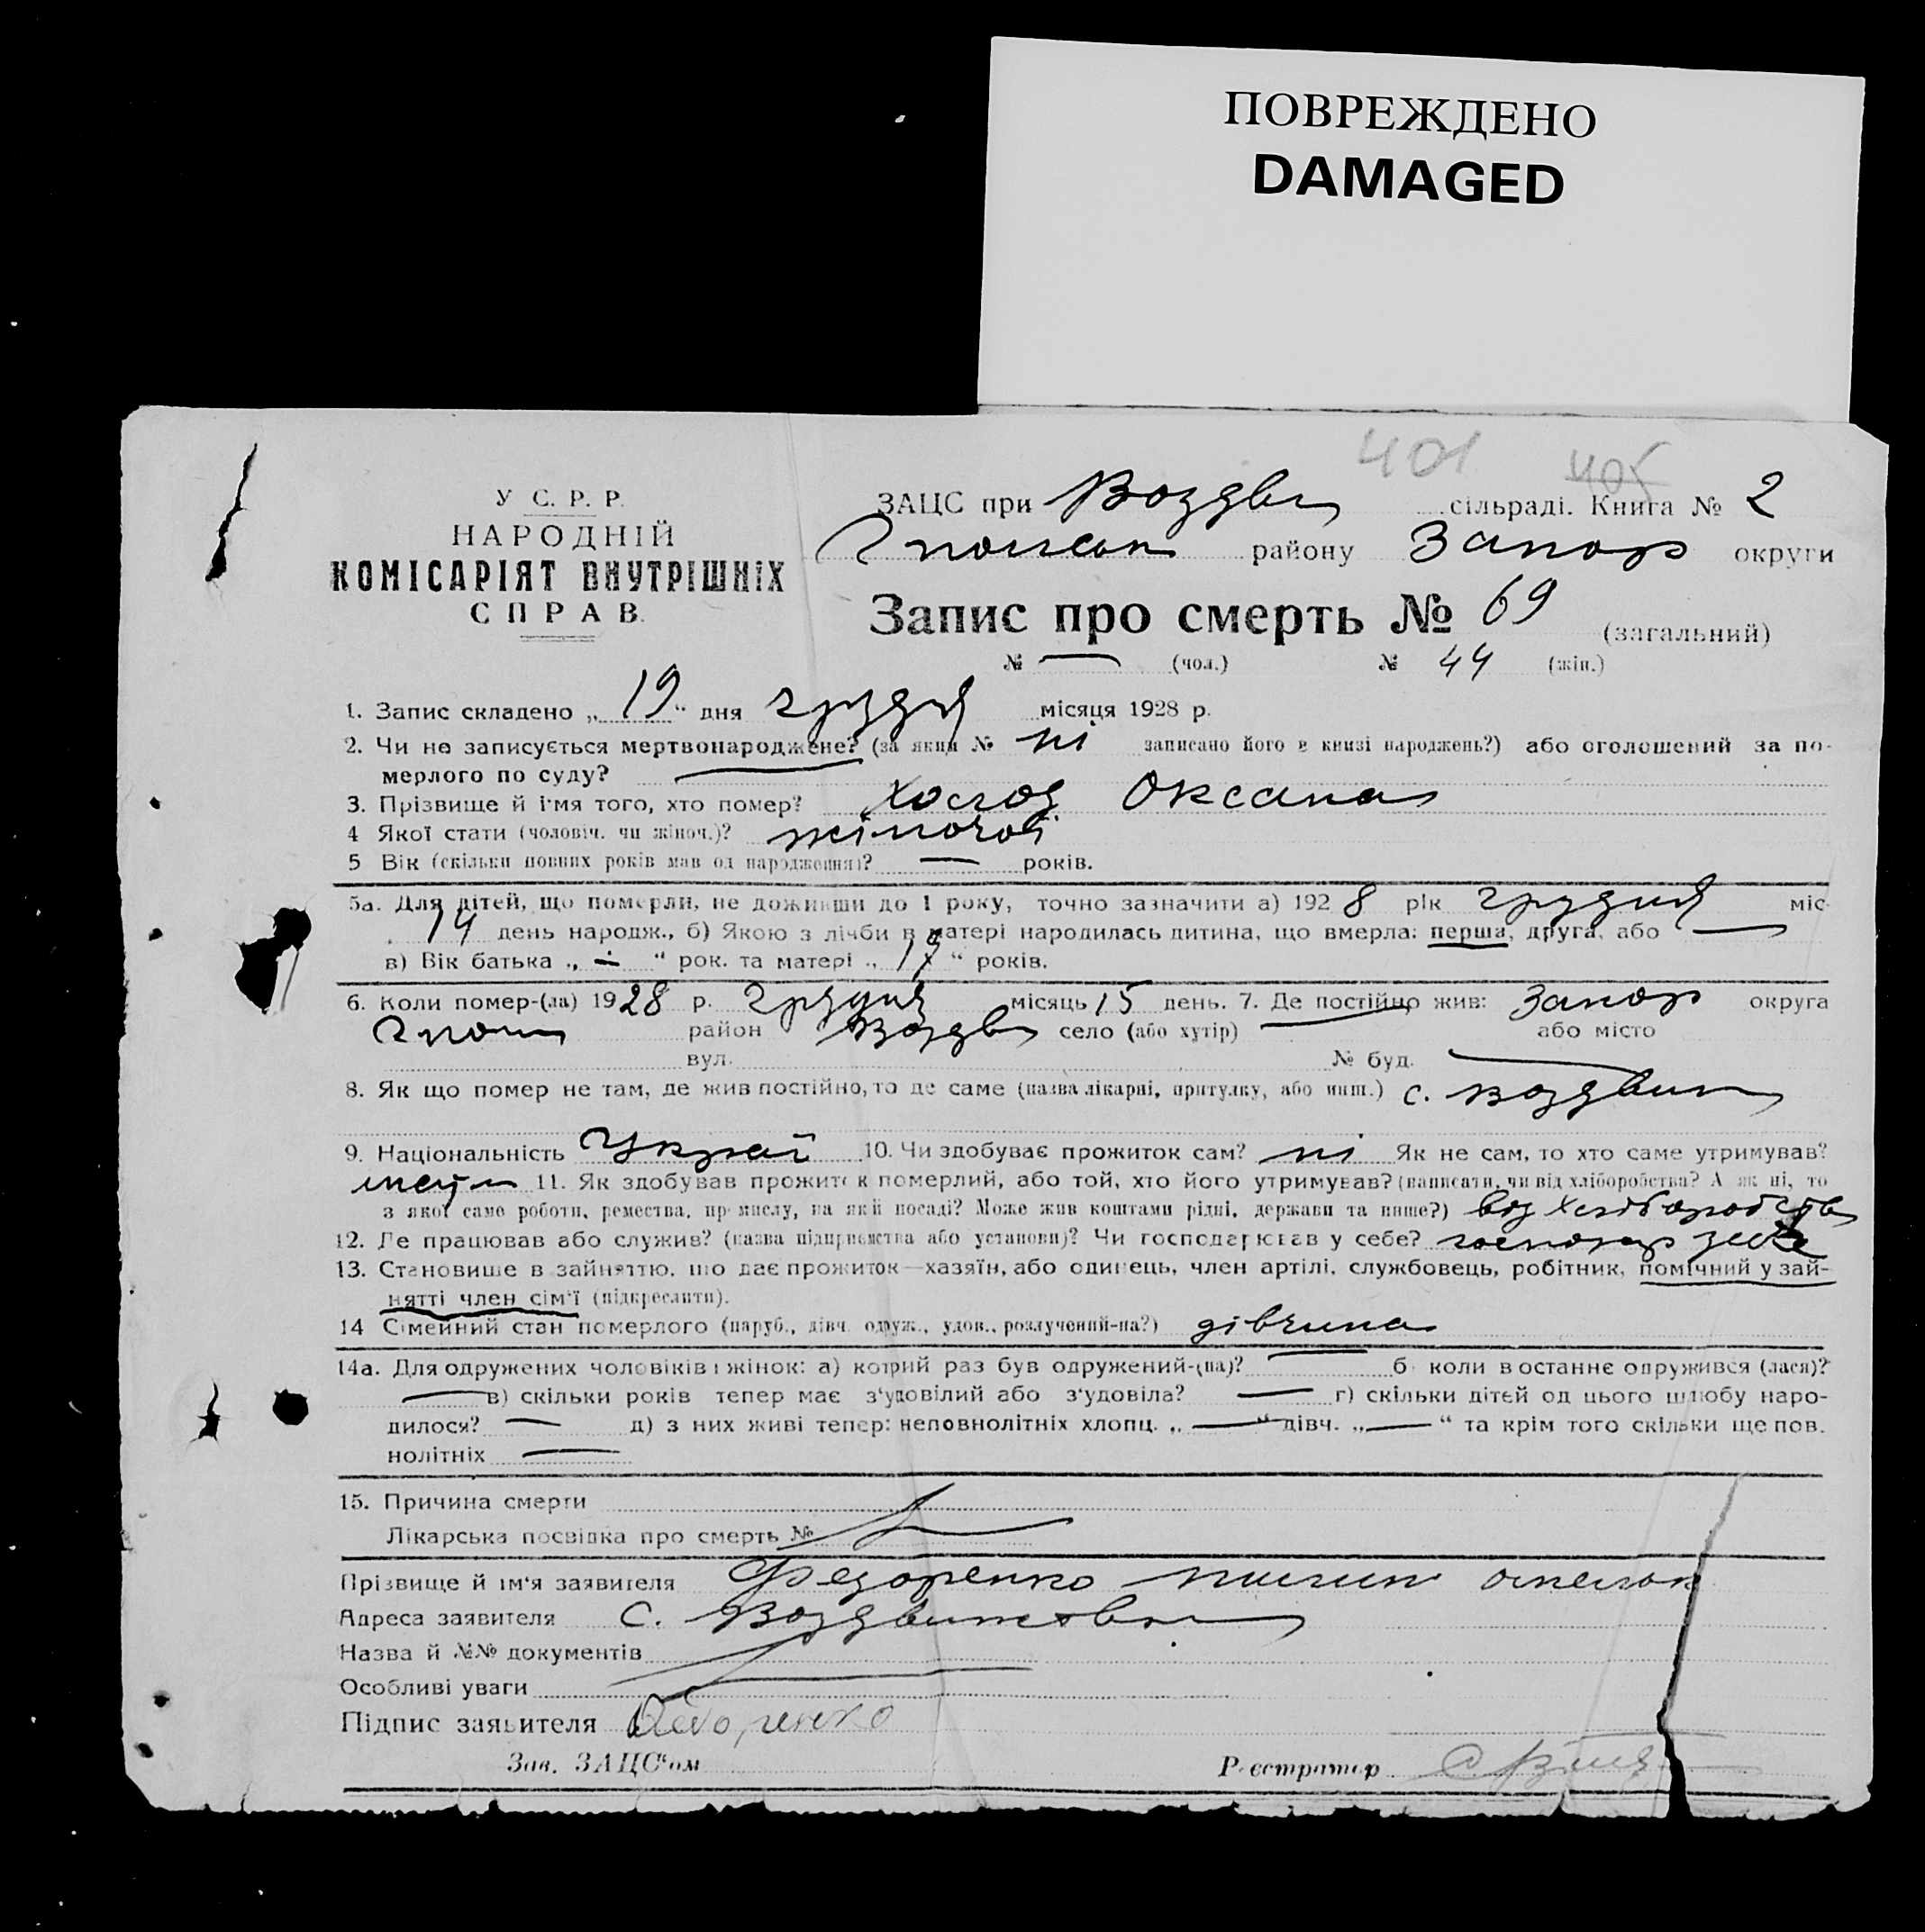 ПОВРЕЖДЕНО
DAMAGED
401 405
У С. Р. Р.
НАРОДНІЙ
КОМІСАРІЯТ ВНУТРІШНІХ
СПРАВ.
ЗАЦС при Воздви сільраді. Книга № 2
району Запор округи
Запис про смерть № 69 (загальний)
№ — (чол.) № 44 (жін.)
1. Запис складено „ 19 “ дня грудня місяця 1928 р.
2. Чи не записується мертвонароджене? (за яким № ні записано його в книзі народжень?) або оголошений за по-
мерлого по суду? —
3. Прізвище й імя того, хто помер? Холод Оксана
4 Якої стати (чоловіч. чи жіноч.)? жіночої
5 Вік (скільки повних років мав од народження)? — років.
5а. Для дітей, що померли, не доживши до 1 року, точно зазначити а) 1928 рік грудня міс.
14 день народж., б) Якою з лічби в матері народилась дитина, що вмерла: перша, друга, або —
в) Вік батька „ — “ рок. та матері „ 19 “ років.
6. Коли помер-(ла) 1928 р. грудня місяць 15 день. 7. Де постійно жив: Запор округа
район Воздв село (або хутір) — або місто
вул. № буд. —
8. Як що помер не там, де жив постійно, то де саме (назва лікарні, притулку, або инш.) с. Воздвиж
9. Національність Украї 10. Чи здобуває прожиток сам? ні Як не сам, то хто саме утримував?
11. Як здобував прожиток померлий, або той, хто його утримував? (написати, чи від хліборобства? А як ні, то
з якої саме роботи, ремества, промислу, на якій посаді? Може жив коштами рідні, держави та инше?) від хліборобства
12. Де працював або служив? (назва підприємства або установи)? Чи господарював у себе? господар
13. Становише в зайняттю, що дає прожиток—хазяїн, або одинець, член артілі, службовець, робітник, помічний у зай-
нятті член сім'ї (підкреслити).
14 Сімейний стан померлого (паруб., дівч. одруж., удов., розлучений-на?) дівчина
14а. Для одружених чоловіків і жінок: а) котрий раз був одружений-(на)? — б) коли востаннє одружився (лася)?
— в) скільки років тепер має з'удовілий або з'удовіла? — г) скільки дітей од цього шлюбу наро-
дилося? — д) з них живі тепер: неповнолітніх хлопц. „ — “ дівч. „ — “ та крім того скільки ще пов.
нолітніх —
15. Причина смерти
Лікарська посвідка про смерть № —
Прізвище й ім'я заявителя Федоренко
Адреса заявителя с. Воздвижевка
Назва й №№ документів
Особливі уваги —
Підпис заявителя Федоренко
Зав. ЗАЦС'ом Реєстратор